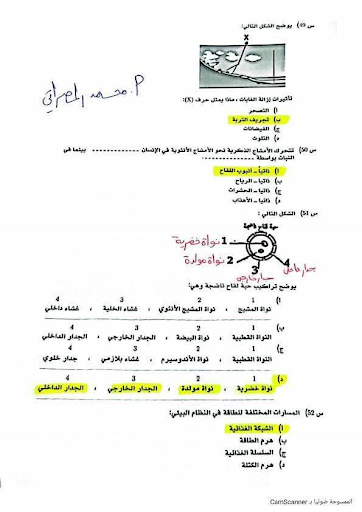 س 49) يوضح الشكل التالي:
X
P. محمد
تأثيرات إزالة الغابات، ماذا يمثل حرف (X):
أ) التصحر
ب) تجريف التربة
ج) الفيضانات
د) التلوث
س 50) تتحرك الأمشاج الذكرية نحو الأمشاج الأنثوية في الإنسان ------------ بينما في
النبات بواسطة ------------
أ) ذاتياً - أنبوب اللقاح
ب) ذاتيا - الرياح
ج) ذاتيا - الحشرات
د) ذاتيا - الأهداب
س 51) الشكل التالي:
حبة لقاح ناضجة
1 نواة خضرية
2 نواة مولدة
3 جدار خارجي
4 جدار داخلي
يوضح تراكيب حبة لقاح ناضجة وهي:
1 2 3 4
أ) نواة المشيج ، نواة المشيج الأنثوي ، غشاء الخلية ، غشاء داخلي
1 2 3 4
ب) النواة القطبية ، نواة البيضة ، الجدار الخارجي ، الجدار الداخلي
1 2 3 4
ج) النواة القطبية ، نواة الأندوسبرم ، غشاء بلازمي ، جدار خلوي
1 2 3 4
د) نواة خضرية ، نواة مولدة ، الجدار الخارجي ، الجدار الداخلي
س 52) المسارات المختلفة للطاقة في النظام البيئي:
أ) الشبكة الغذائية
ب) هرم الطاقة
ج) السلسلة الغذائية
د) هرم الكتلة
الممسوحة ضوئيا بـ CamScanner